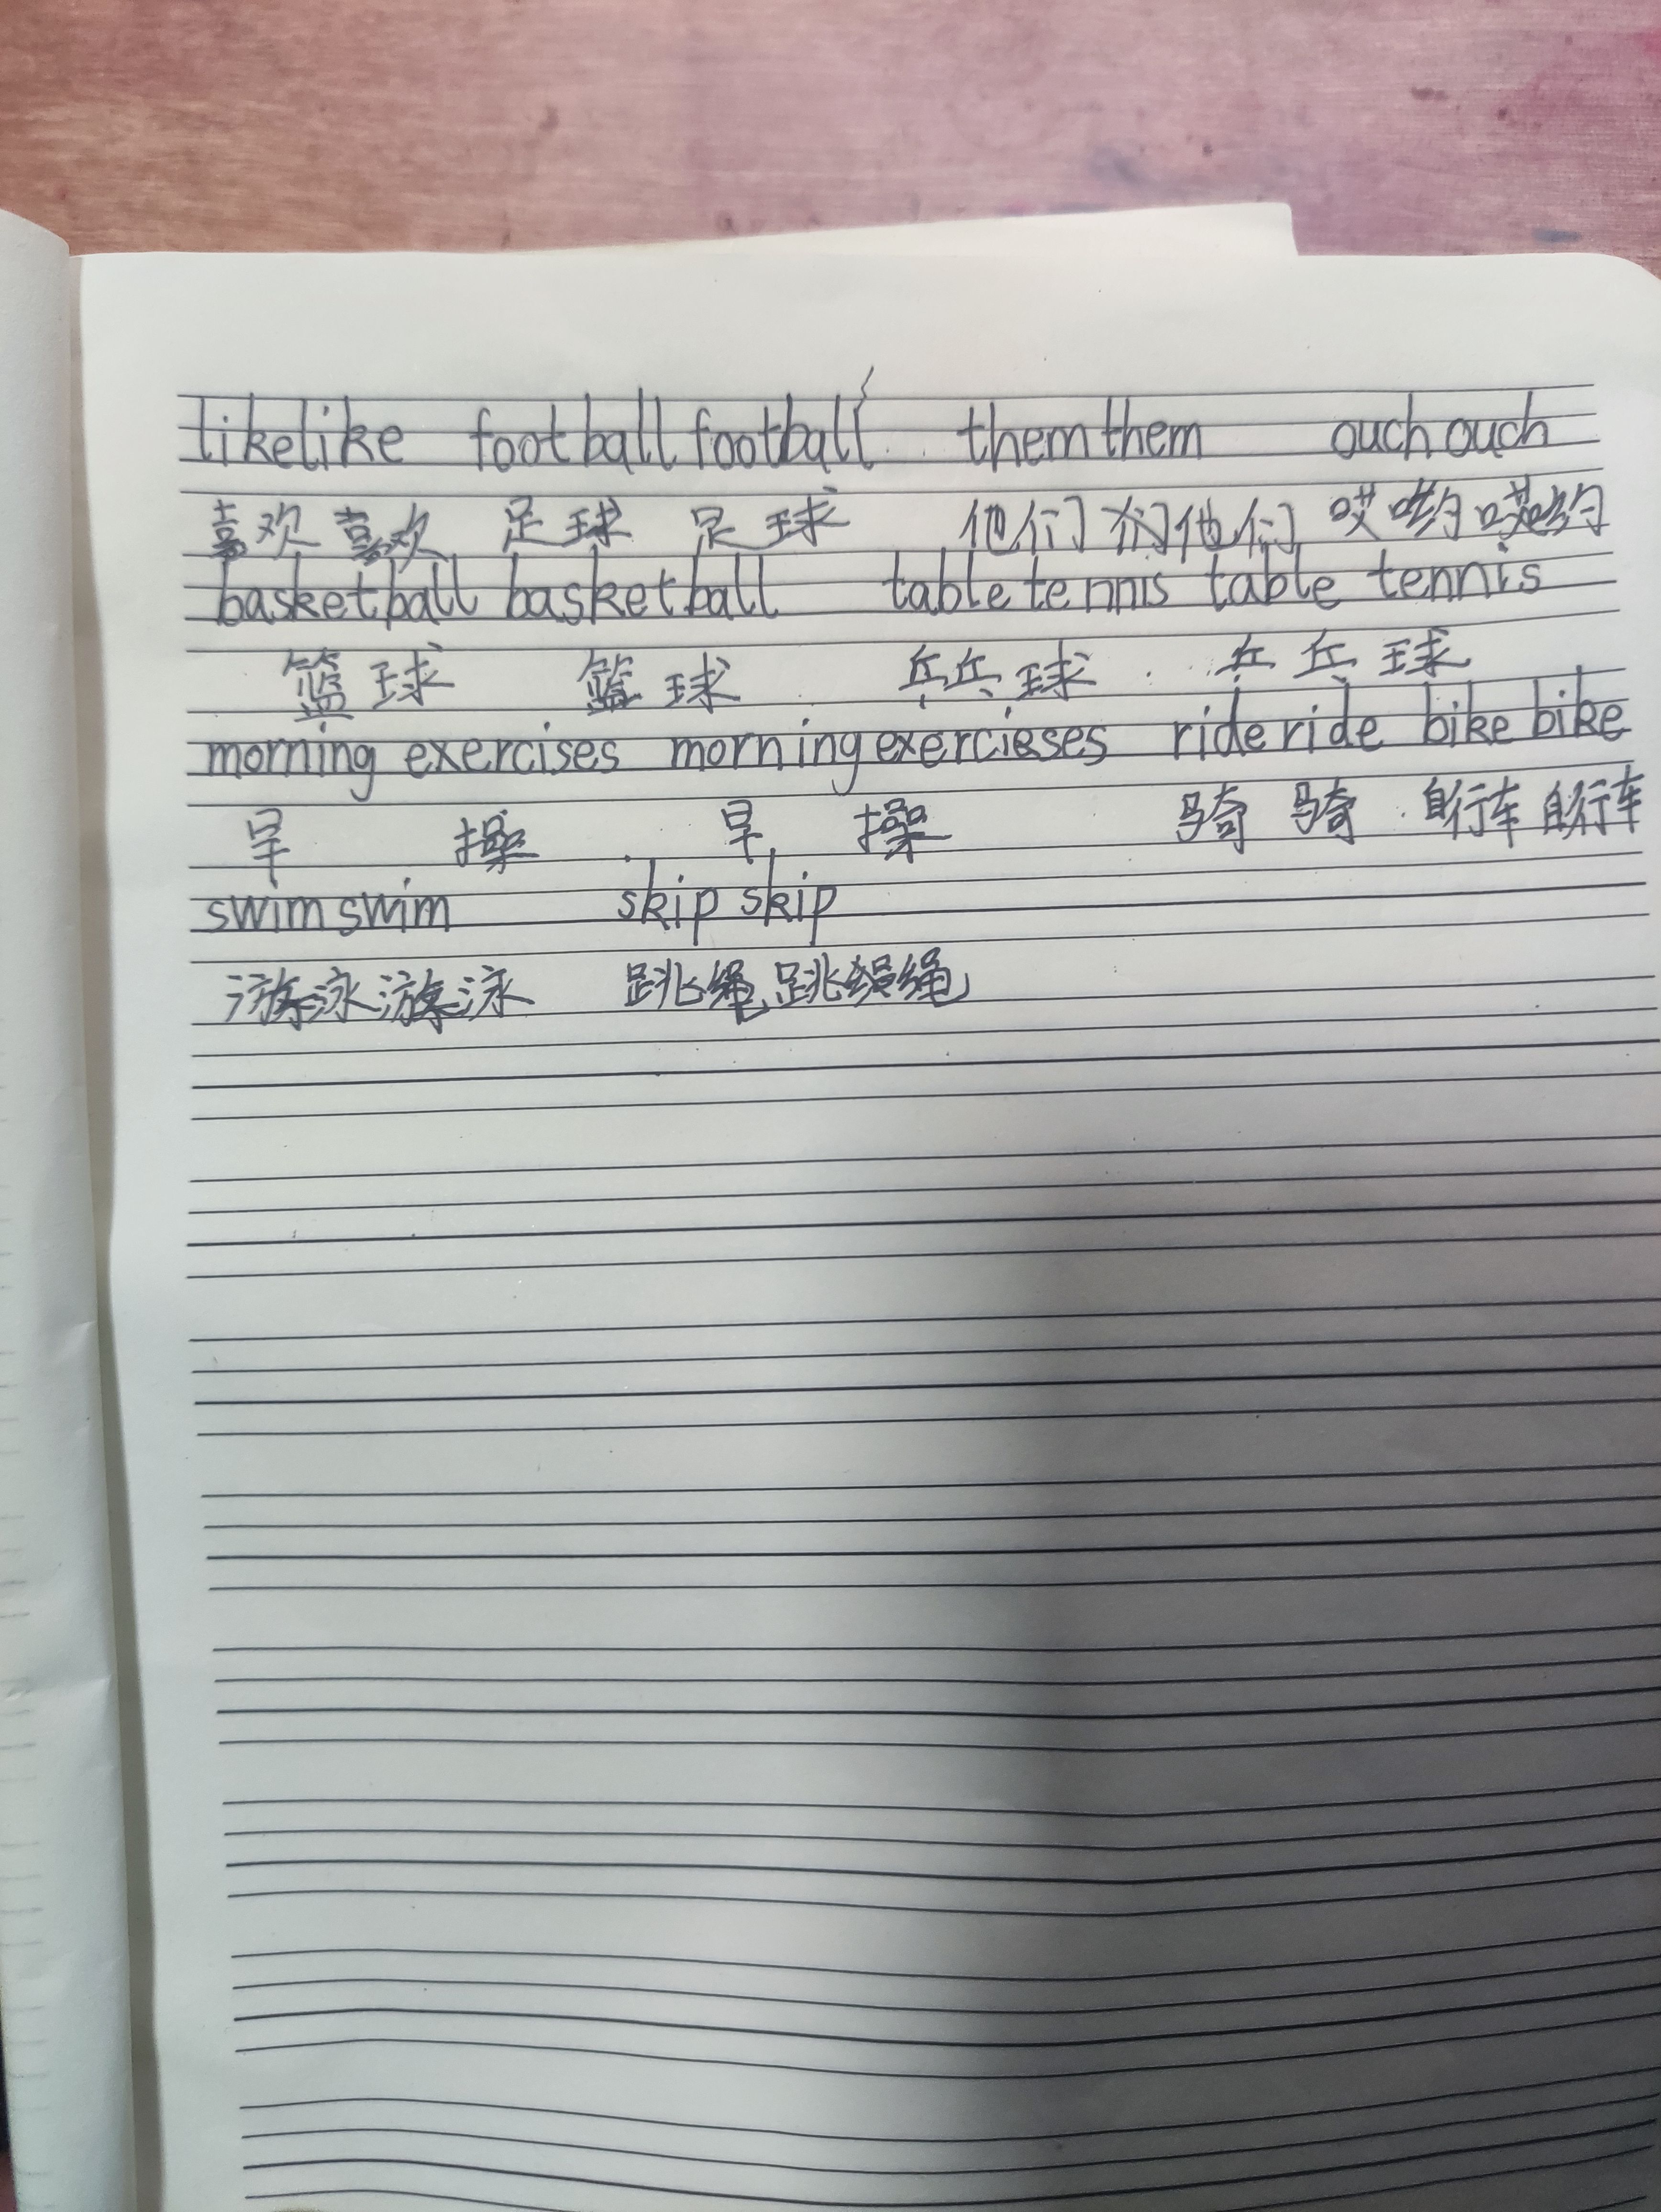 likelike football football themthem ouch ouch
喜欢 喜欢 足球 足球 他们 他们 哎哟 哎哟
basketball basketball table tennis table tennis
篮球 篮球 乒乓球 乒乓球
morning exercises morning exercieses ride ride bike bike
早 操 早 操 骑 骑 自行车 自行车
swim swim skip skip
游泳 游泳 跳绳 跳绳